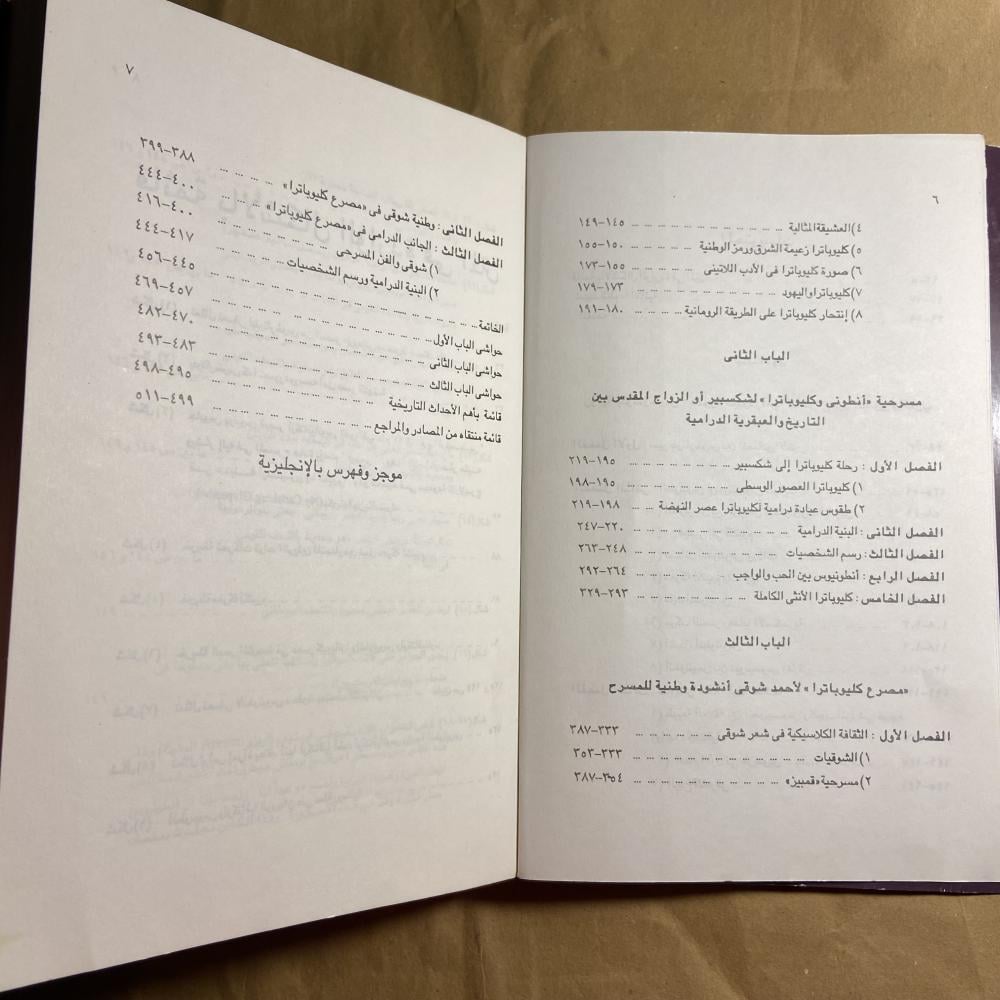 ٦
٤) العشيقة المثالية ... ... ... ... ... ... ... ١٤٥-١٤٩
٥) كليوباترا زعيمة الشرق ورمز الوطنية ... ... ... ١٥٠-١٥٥
٦) صورة كليوباترا فى الأدب اللاتينى ... ... ... ... ١٥٥-١٧٣
٧) كليوباترا واليهود ... ... ... ... ... ... ... ١٧٣-١٧٩
٨) إنتحار كليوباترا على الطريقة الرومانية ... ... ... ١٨٠-١٩١
الباب الثانى
مسرحية «أنطونى وكليوباترا» لشكسبير أو الزواج المقدس بين
التاريخ والعبقرية الدرامية
الفصل الأول : رحلة كليوباترا إلى شكسبير ... ... ... ... ١٩٥-٢١٩
١) كليوباترا العصور الوسطى ... ... ... ... ... ١٩٥-١٩٨
٢) طقوس عبادة درامية لكليوباترا عصر النهضة ... ١٩٨-٢١٩
الفصل الثانى : البنية الدرامية ... ... ... ... ... ... ٢٢٠-٢٤٧
الفصل الثالث : رسم الشخصيات ... ... ... ... ... ... ٢٤٨-٢٦٣
الفصل الرابع : أنطونيوس بين الحب والواجب ... ... ... ... ٢٦٤-٢٩٢
الفصل الخامس : كليوباترا الأنثى الكاملة ... ... ... ... ... ٢٩٣-٣٢٩
الباب الثالث
«مصرع كليوباترا» لأحمد شوقى أنشودة وطنية للمسرح
الفصل الأول : الثقافة الكلاسيكية فى شعر شوقى ... ... ... ٣٣٣-٣٨٧
١) الشوقيات ... ... ... ... ... ... ... ... ٣٣٣-٣٥٣
٢) مسرحية «قمبيز» ... ... ... ... ... ... ... ٣٥٤-٣٨٧
٧
الفصل الثانى : وطنية شوقى فى «مصرع كليوباترا» ... ... ... ٣٨٨-٣٩٩
الفصل الثالث : الجانب الدرامى فى «مصرع كليوباترا» ... ... ٤٠٠-٤٤٤
١) شوقى والفن المسرحى ... ... ... ... ... ... ٤٠٠-٤١٦
٢) البنية الدرامية ورسم الشخصيات ... ... ... ... ٤١٧-٤٤٤
الخاتمة ... ... ... ... ... ... ... ... ... ... ٤٤٥-٤٥٦
حواشى الباب الأول ... ... ... ... ... ... ... ... ٤٥٧-٤٦٩
حواشى الباب الثانى ... ... ... ... ... ... ... ... ٤٧٠-٤٨٢
حواشى الباب الثالث ... ... ... ... ... ... ... ... ٤٨٣-٤٩٣
قائمة بأهم الأحداث التاريخية ... ... ... ... ... ... ٤٩٥-٤٩٨
قائمة منتقاه من المصادر والمراجع ... ... ... ... ... ٤٩٩-٥١١
موجز وفهرس بالإنجليزية